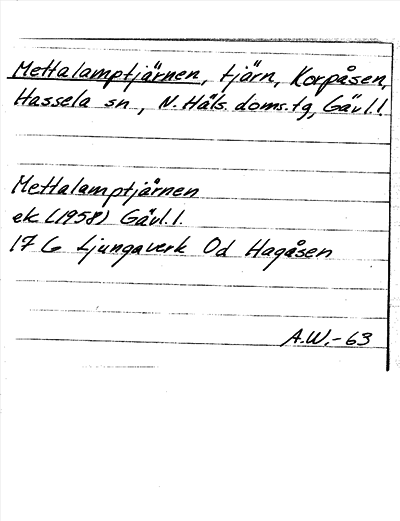 Mettalamptjärnen, tjärn, Korpåsen,
Hassela sn, N. Häls. doms.tg, Gävl.l.
Mettalamptjärnen
ek (1958) Gävl.l.
17 G Ljungaverk Od Hagåsen
A.W.-63